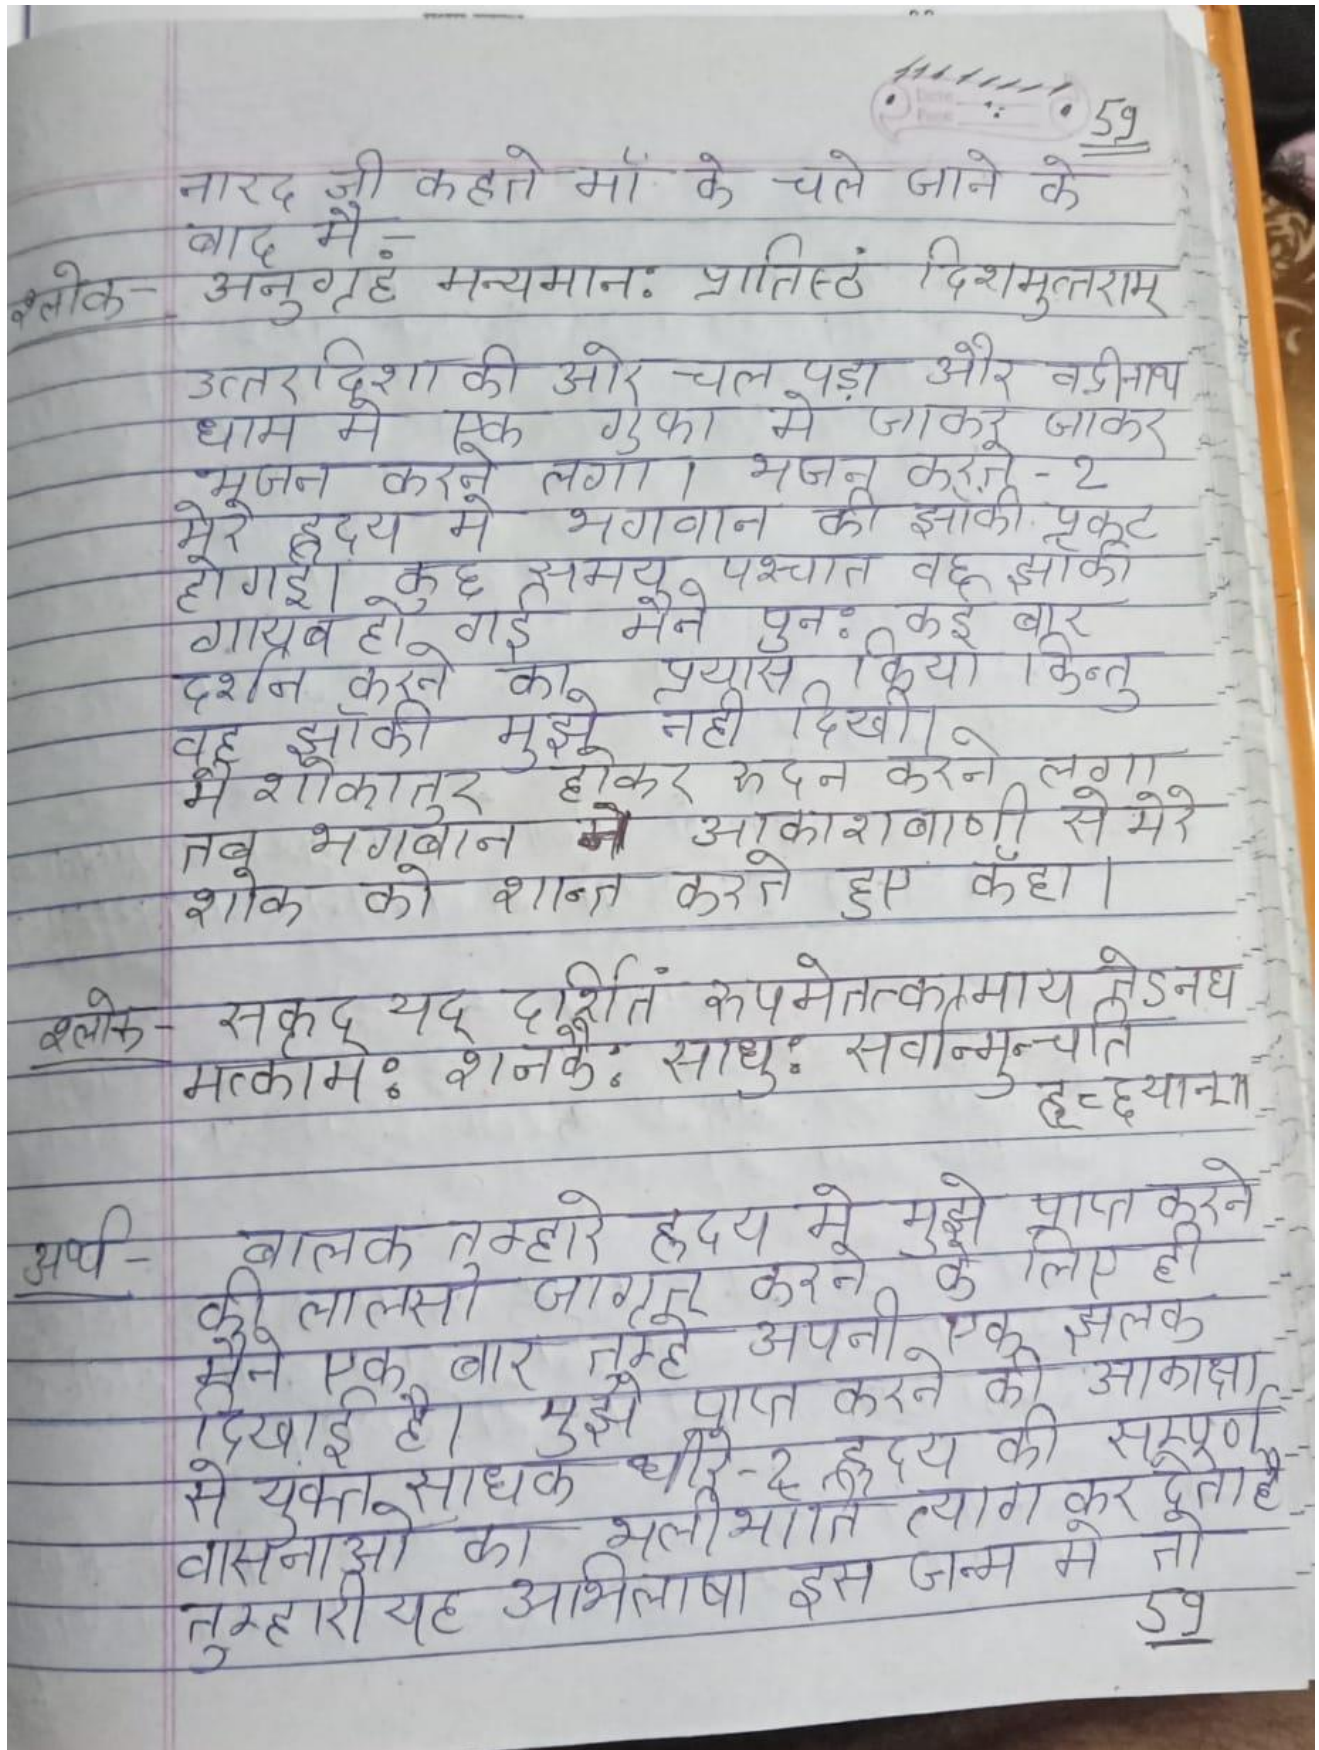 59
नारद जी कहते माँ के चले जाने के
बाद मै :-
श्लोक - अनुग्रहं मन्यमानः प्रातिस्ठं दिशमुत्तराम्
उत्तरदिशा की ओर चल पड़ा और बद्रीनाथ
धाम मे एक गुफा मे जाकर जाकर
भजन करने लगा। भजन करते - २
मेरे हृदय मे भगवान की झाँकी प्रकट
हो गई। कुछ समय पश्चात वह झाँकी
गायब हो गई मैने पुनः कई बार
दर्शन करने का प्रयास किया किन्तु
वह झाँकी मुझे नही दिखी।
मै शोकातुर होकर रुदन करने लगा
तब भगबान ने आकाशबाणी से मेरे
शोक को शान्त करते हुए कँहा।
श्लोक - सकृद् यद् दर्शितं रुपमेतत्कामाय तेऽनघ
मत्कामः शनकैः साधुः सर्वान्मुन्चति
हृच्छयान्॥
अर्थ - बालक तुम्हारे हृदय मे मुझे प्राप्त करने
की लालसा जागृत करने के लिए ही
मैने एक बार तुम्हे अपनी एक झलक
दिखाई है। मुझे प्राप्त करने की आकाक्षा
से युक्त साधक धीरे-२ हृदय की सम्पूर्ण
वासनाओ का भलीभाति त्याग कर देता है
तुम्हारी यह अभिलाषा इस जन्म मे तो
59